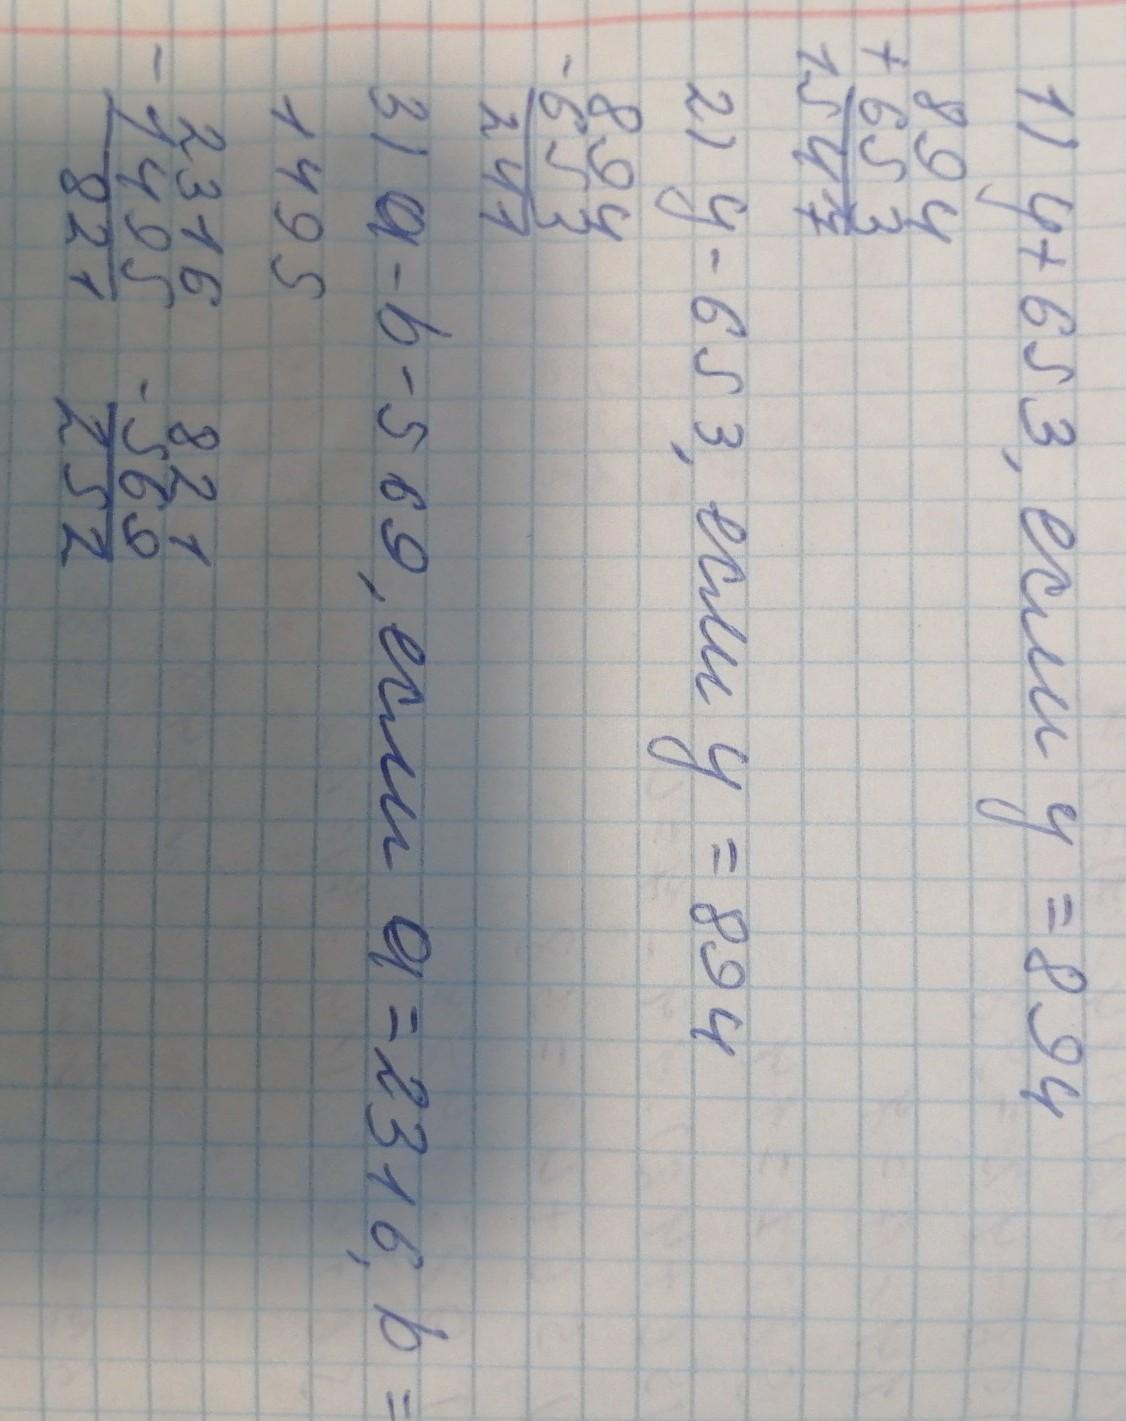 1) y + 653, если y = 894
894
+ 653
1547
2) y - 653, если y = 894
894
- 653
241
3) a - b - 569, если a = 2316, b =
1495
2316 821
- 1495 - 569
821 252